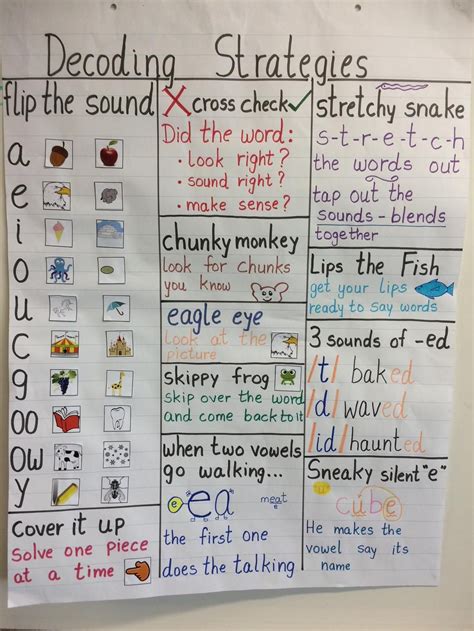 Decoding Strategies
flip the sound
a
e
i
o
u
c
g
oo
ow
y
Cover it up
Solve one piece
at a time
X cross check ✓
Did the word:
• look right?
• sound right?
• make sense?
chunky monkey
look for chunks
you know
eagle eye
look at the
picture
Skippy frog
skip over the word
and come back to it
when two vowels
go walking...
e ea meat
the first one
does the talking
stretchy snake
s-t-r-e-t-c-h
the words out
tap out the
sounds - blends
together
Lips the Fish
get your lips
ready to say words
3 sounds of -ed
/t/ baked
/d/ waved
/id/ haunted
Sneaky silent "e"
u
cube
He makes the
vowel say its
name